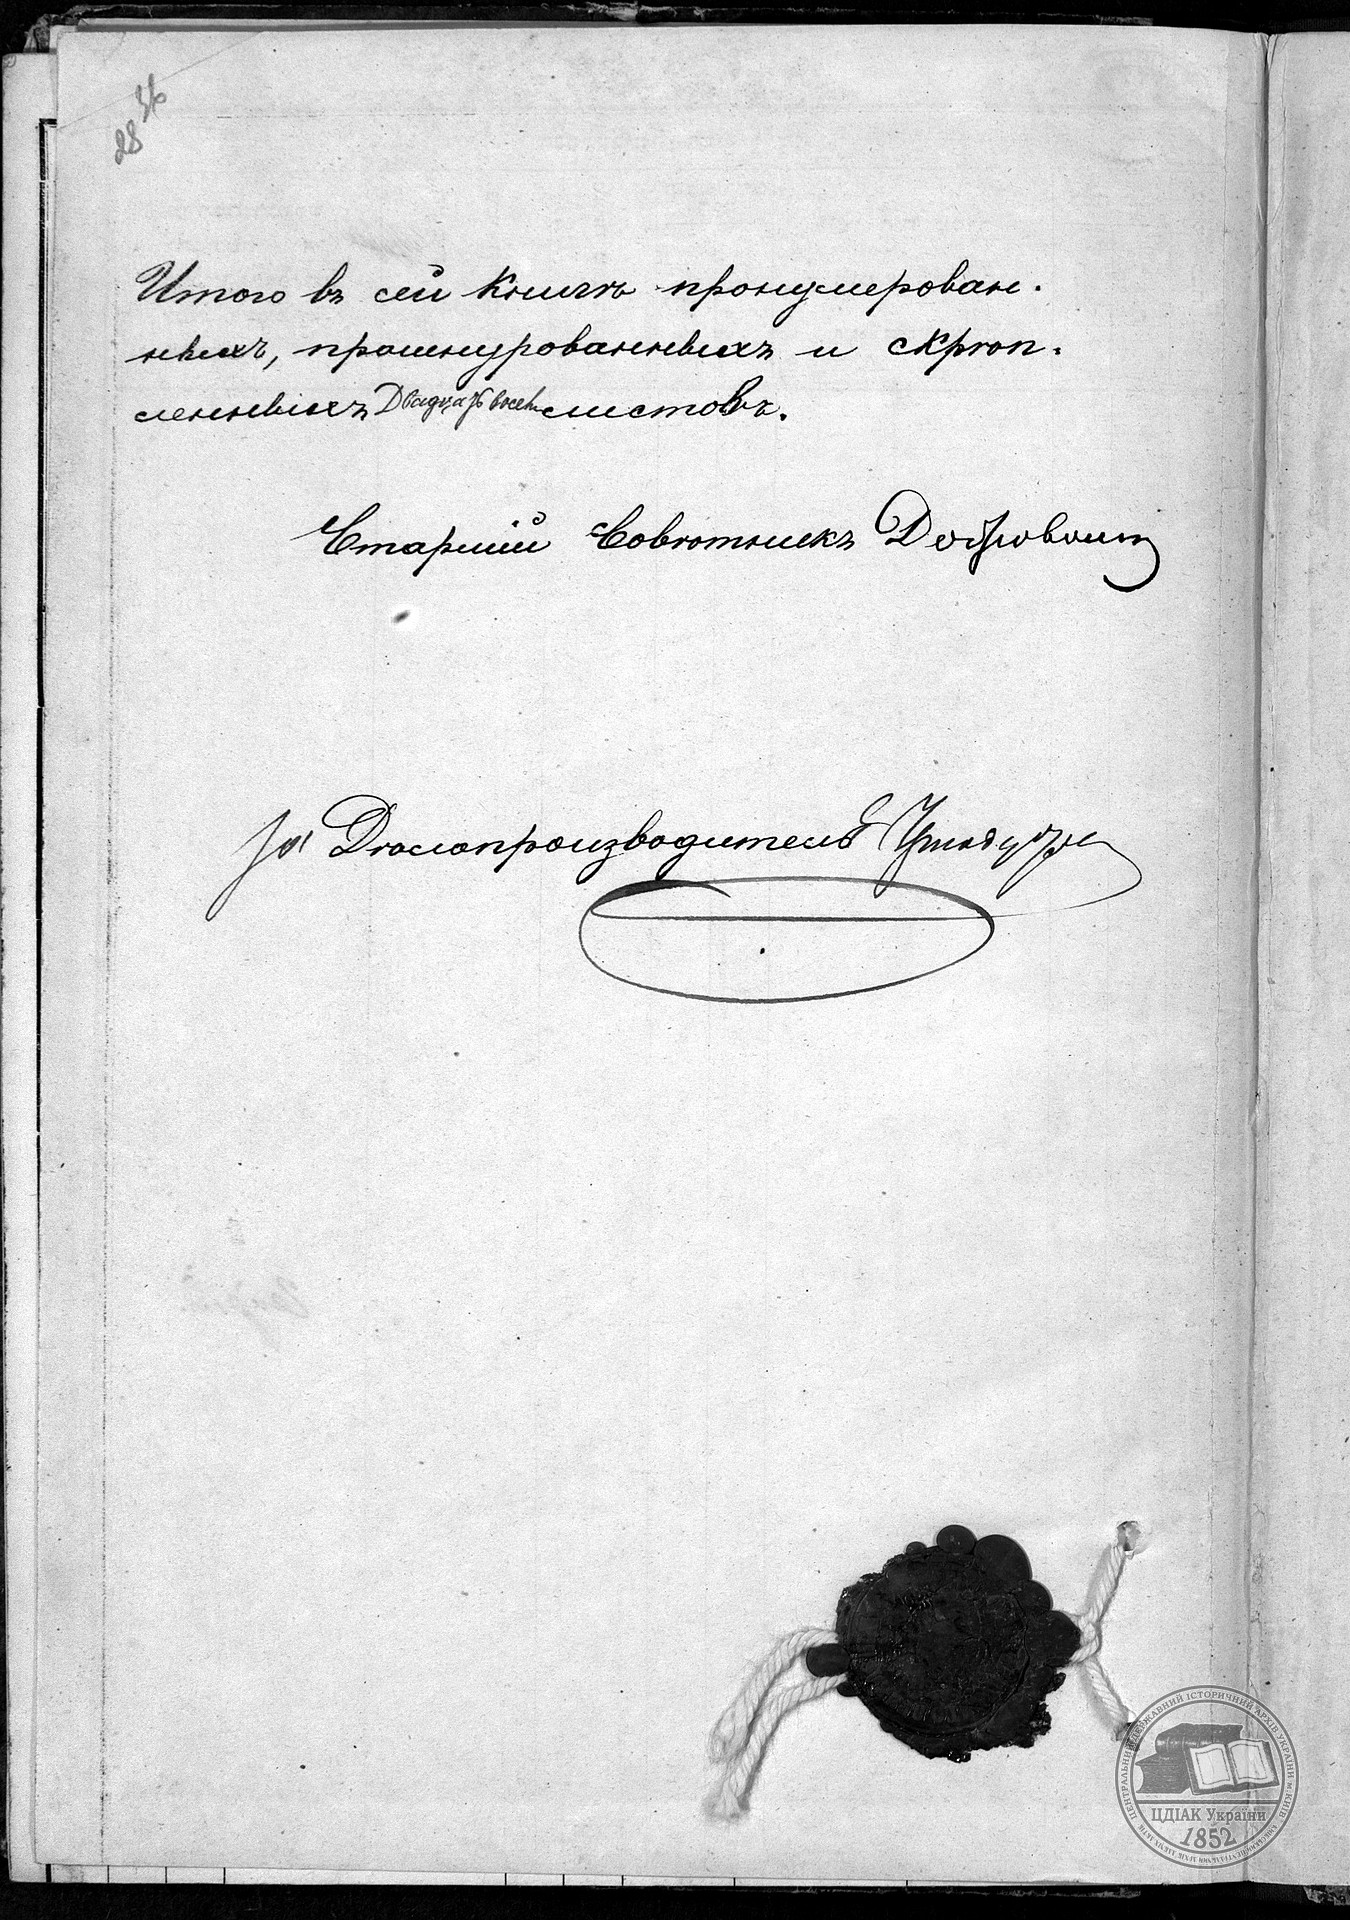 36
28
Итого въ сей книгѣ пронумерован-
ныхъ, прошнурованныхъ и скрѣп-
ленныхъ Двадцать восемь листовъ.
Старшій Совѣтникъ
За Дѣлопроизводителя
ЦЕНТРАЛЬНИЙ ДЕРЖАВНИЙ ІСТОРИЧНИЙ АРХІВ УКРАЇНИ м. КИЇВ
ЦДІАК України
1852